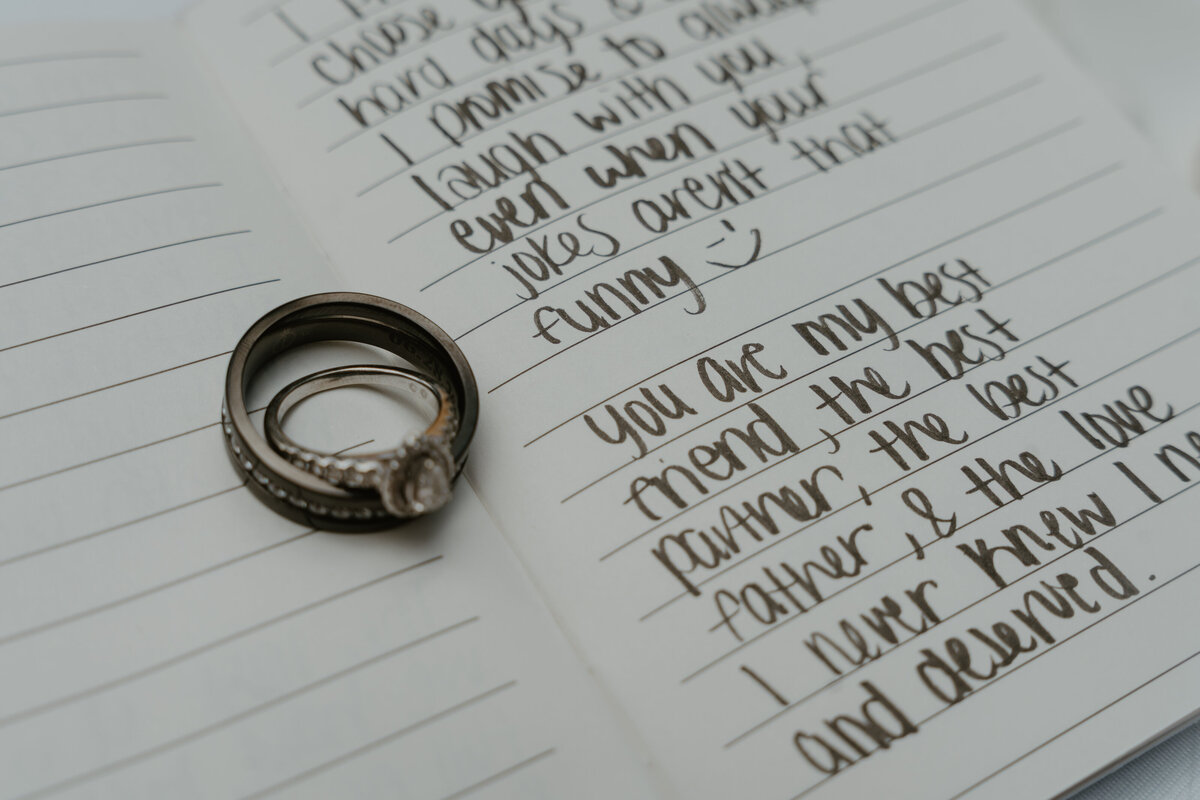 choose
hard days &
I promise to always
laugh with you
even when your
jokes aren't that
funny :)
you are my best
friend, the best
partner, the best
father, & the love
I never knew I
and deserved.